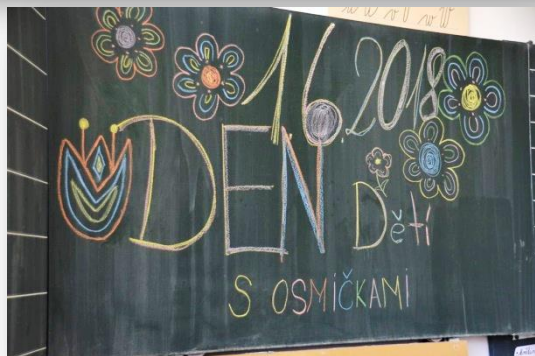 1.6.2018
DEN Dětí
S OSMIČKAMI